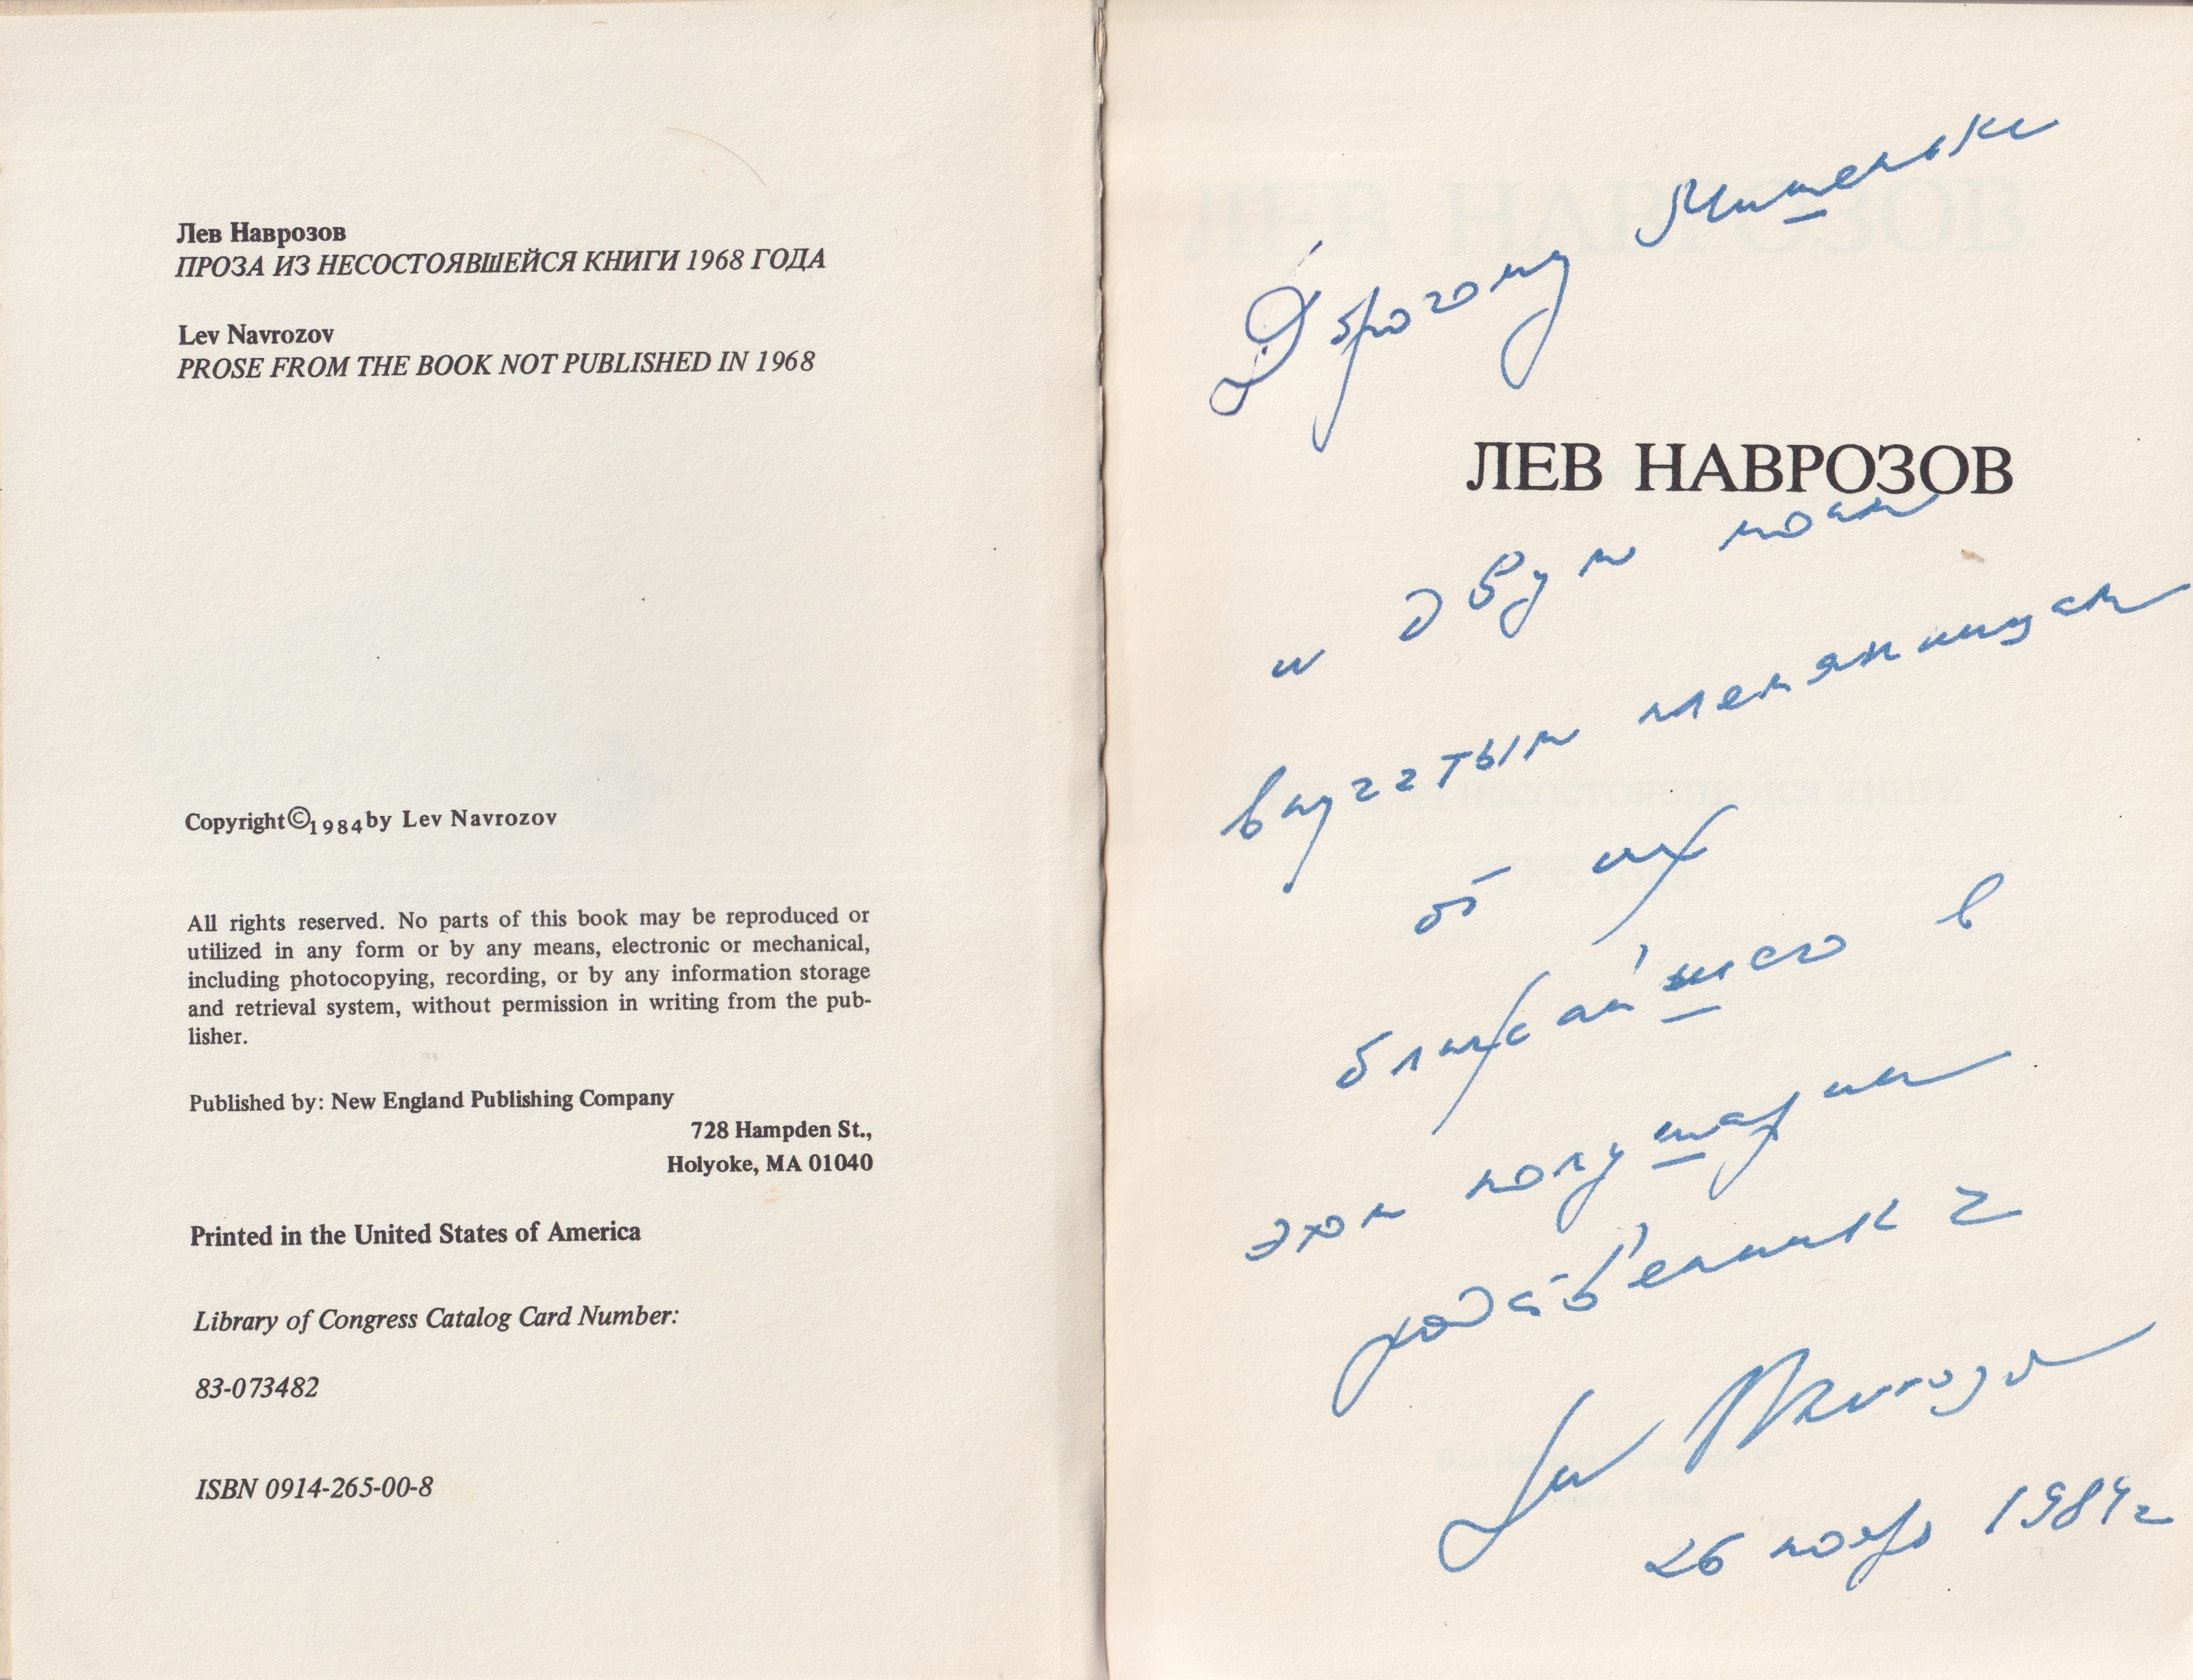 Лев Наврозов
ПРОЗА ИЗ НЕСОСТОЯВШЕЙСЯ КНИГИ 1968 ГОДА
Lev Navrozov
PROSE FROM THE BOOK NOT PUBLISHED IN 1968
Copyright © 1984 by Lev Navrozov
All rights reserved. No parts of this book may be reproduced or
utilized in any form or by any means, electronic or mechanical,
including photocopying, recording, or by any information storage
and retrieval system, without permission in writing from the pub-
lisher.
Published by: New England Publishing Company
728 Hampden St.,
Holyoke, MA 01040
Printed in the United States of America
Library of Congress Catalog Card Number:
83-073482
ISBN 0914-265-00-8
Дорогому Мишеньке
ЛЕВ НАВРОЗОВ
и двум моим
внучатым племянницам
от их
ближайшего в
этом полушарии
родственника
Лев Наврозов
26 ноября 1984 г